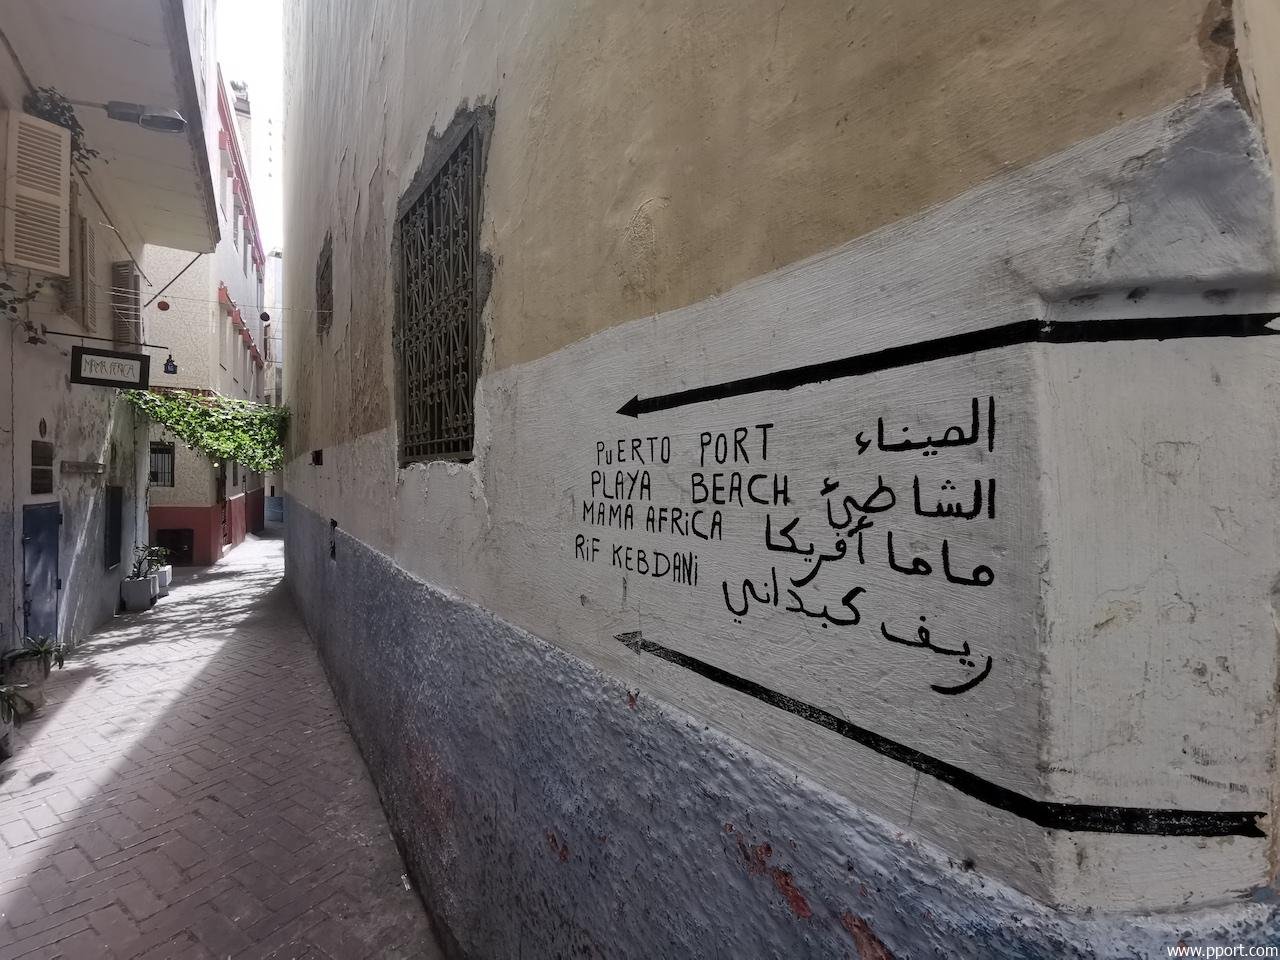 MAMA AFRICA
PuERTO PORT الميناء
PLAYA BEACH الشاطئ
MAMA AFRiCA ماما أفريكا
RiF KEBDANi ريف كبداني
www.pport.com